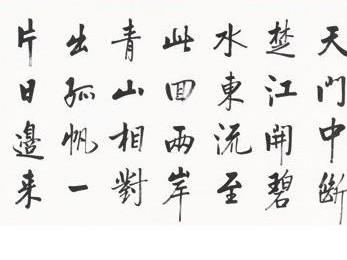 天門中斷
楚江開碧
水東流至
此回兩岸
青山相對
出孤帆一
片日邊来